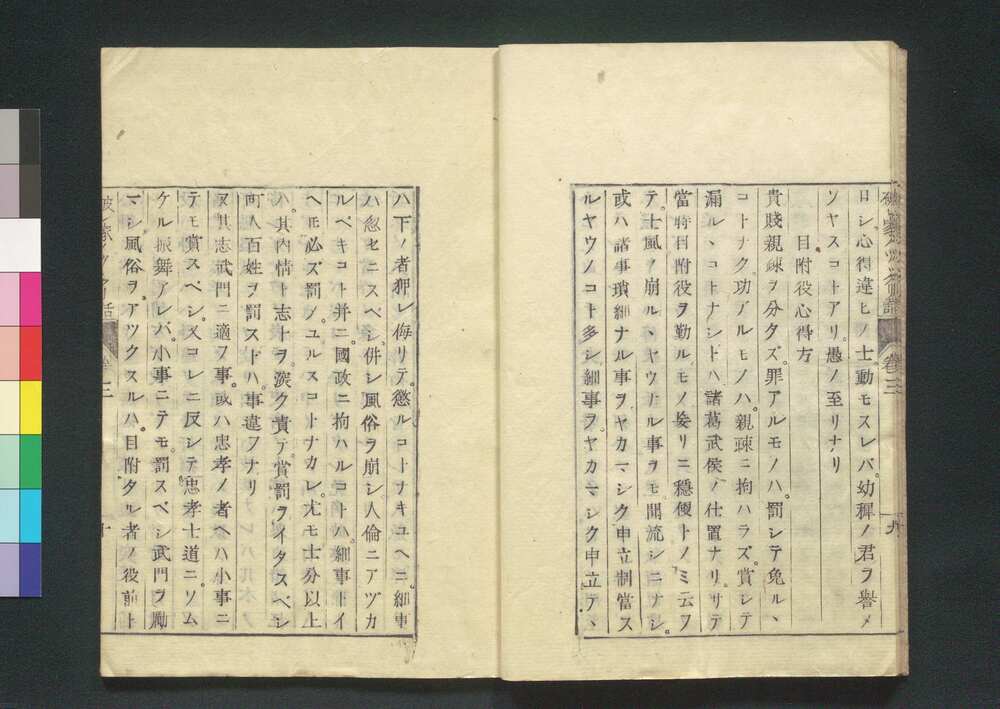 日シ心得違ヒノ士動モスレバ。幼稺ノ君ヲ譽メ
ソヤスコトアリ。愚ノ至リナリ
目附役心得方
貴賤親疎ヲ分タズ。罪アルモノハ罰シテ免ルヽ
コトナク。功アルモノハ。親疎ニ拘ハラズ。賞シテ
漏ルヽコトナシトハ諸葛武侯ノ仕置ナリ。サテ
當時目附役ヲ勤ルモノ妄リニ穩便トノミ云フ
テ。士風ノ崩ルヽヤウナル事ヲモ聞流シニナシ。
或ハ諸事瑣細ナル事ヲヤカマシク申立制當ス
ルヤウノコト多シ細事ヲ。ヤカマシク申立テヽ
卷三
九
ハ下ノ者狎レ侮リテ。懲ルコトナキユヘニ。細事
ハ忽セニスベシ。併シ風俗ヲ崩シ人倫ニアヅカ
ルベキコト并ニ。國政ニ拘ハルコトハ。細事トイ
ヘモ必ズ罰ノユルスコトナカレ。尤モ士分以上
ハ。其内情ト志トヲ深ク責テ。賞罰ヲイタスベシ
町人百姓ヲ罰ストハ。事違フナリ
又其志武門ニ適フ事。或ハ忠孝ノ者ヘハ小事ニ
テモ賞スベシ。又コレニ反シテ。忠孝士道ニソム
ケル振舞アレバ。小事ニテモ。罰スベシ武門ヲ勵
マシ風俗ヲアツクスルハ。目附タル者ノ役前ト
十